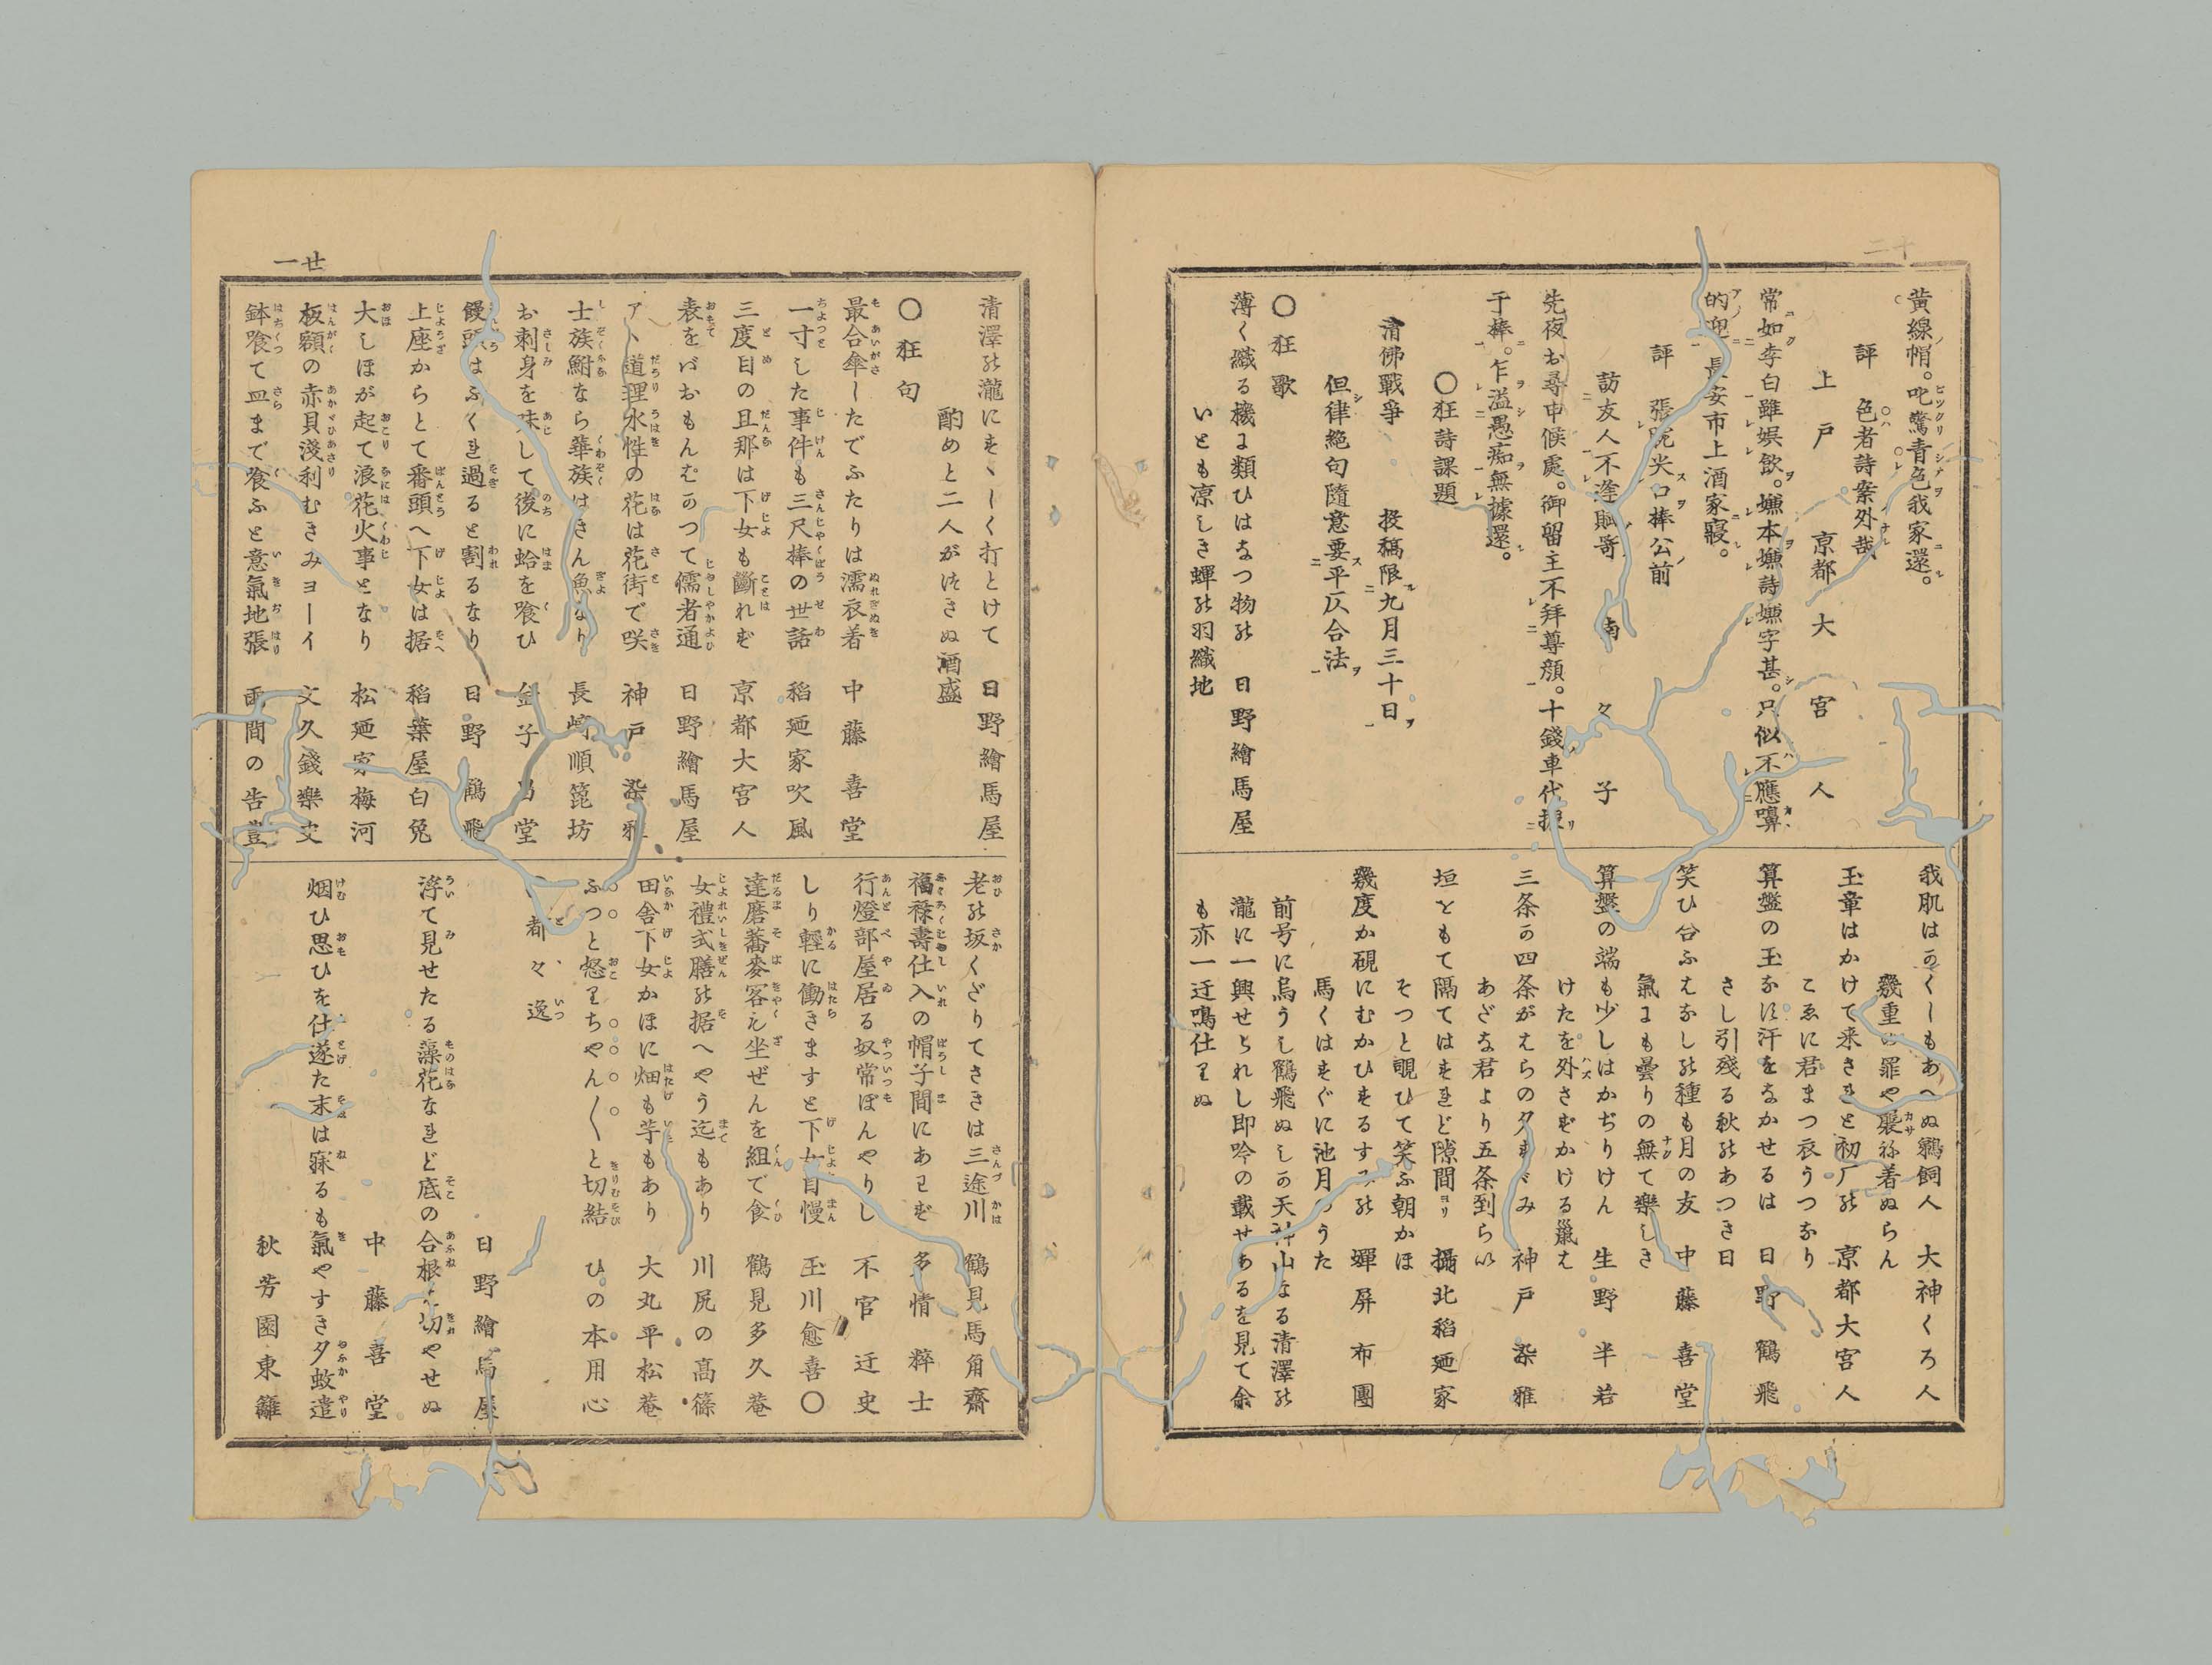 二十
黄線帽。叱驚青色我家還。
評　色者詩案外哉
上戸　京都　大宮人
常如李白雖娯飲。嫌本嫌詩嫌字甚。只似不應嚊
的迎　長安市上酒家寢。
評　張　尖口棒公前
訪友人不逢賦寄　南々子
先夜お尋申候處。御留主不拜尊顔。十錢車代損
于棒。乍溢愚痴無據還。
〇狂詩課題
清佛戰爭　投稿限九月三十日
但律絶句隨意要平仄合法
〇狂歌
薄く織る機に類ひはなつ物の　日野繪馬屋
いとも凉しき蟬の羽織地
我肌はかくしもあへぬ鵜飼人　大神くろ人
幾重の罪や襲ね着ぬらん
玉章はかけて来きと初厂の　京都大宮人
こゑに君まつ衣うつなり
算盤の玉なに汗をなかせるは　日野鶴飛
さし引殘る秋のあつき日
笑ひ合ふはなしの種も月の友　中藤喜堂
氣にも曇りの無て樂しき
算盤の端も少しはかぢりけん　生野半若
けたを外さずかける巣は
三条か四条がはらの夕すゞみ　神戸染雅
あざな君より五条到らい
垣ともて隔てはすれど隙間ヨリ　攝北稻廼家
そつと覗ひて笑ふ朝かほ
幾度か硯にむかひするすの　蟬屏布團
馬くはすぐに池月うた
前号に烏うし鶴飛ぬしか天神山なる清澤の
瀧に一興せられし即吟の載せあるを見て余
も亦一迂鳴仕りぬ
廿一
清澤の瀧にすゞしく打とけて　日野繪馬屋
酌めと二人がつきぬ酒盛
〇狂句
最合傘したでふたりは濡衣着　中藤喜堂
一寸した事件も三尺棒の世話　稻廼家吹風
三度目の旦那は下女も斷れず　京都大宮人
表をバおもんむかつて儒者通　日野繪馬屋
アヽ道理水性の花は花街で咲　神戸染雅
士族鮒なら華族はきん魚なり　長崎順箆坊
お刺身を味して後に蛤を喰ひ　金子昌堂
饅頭はふくれ過ると割るなり　日野鶴飛
上座からとて番頭へ下女は据　稻葉屋白兔
大しほが起て浪花火事となり　松廼家梅河
板額の赤貝淺利むきみヨーイ　文久錢樂史
鉢喰て皿まで飡ふと意氣地張　雨間の告豊
老の坂くざりてさきは三途川　鶴見馬角齋
福祿壽仕入の帽子間にあはず　多情粹士
行燈部屋居る奴常ぼんやりし　不官迂史
しり輕に働きますと下女自慢　玉川愈喜〇
達磨蕎麥客も坐ぜんを組で食　鶴見多久菴
女禮式膳の据へやう迄もあり　川尻の高篠
田舎下女かほに畑も芋もあり　大丸平松菴
ふつと怒りちやん〱と切結　ひの本用心
都々逸
日野繪馬屋
浮て見せたる藻花なれど底の合根は切やせぬ
中藤喜堂
烟ひ思ひを仕遂た末は寐るも氣やすき夕蚊遣
秋芳園東籬